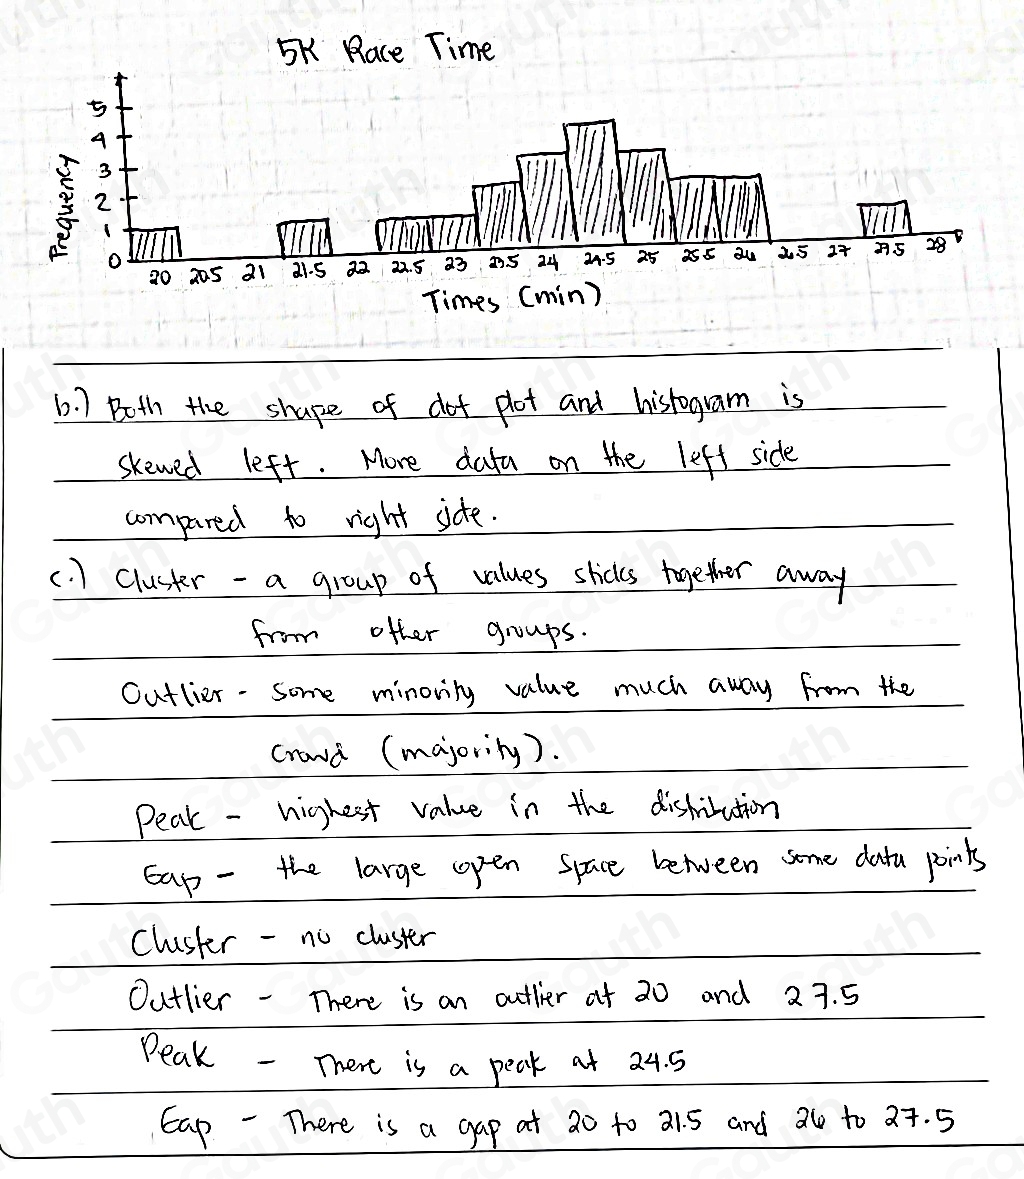 5K Race Time
5
4
3
2
1
0
Frequency
20 20.5 21 21.5 22 22.5 23 23.5 24 24.5 25 25.5 26 26.5 27 27.5 28
Times (min)
b.) Both the shape of dot plot and histogram is
skewed left. More data on the left side
compared to right side.
c.) Cluster - a group of values sticks together away
from other groups.
Outlier - Some minority value much away from the
crowd (majority).
Peak - highest value in the distribution
Gap - the large open space between some data points
Cluster - no cluster
Outlier - There is an outlier at 20 and 27.5
Peak - There is a peak at 24.5
Gap - There is a gap at 20 to 21.5 and 26 to 27.5
Gauth